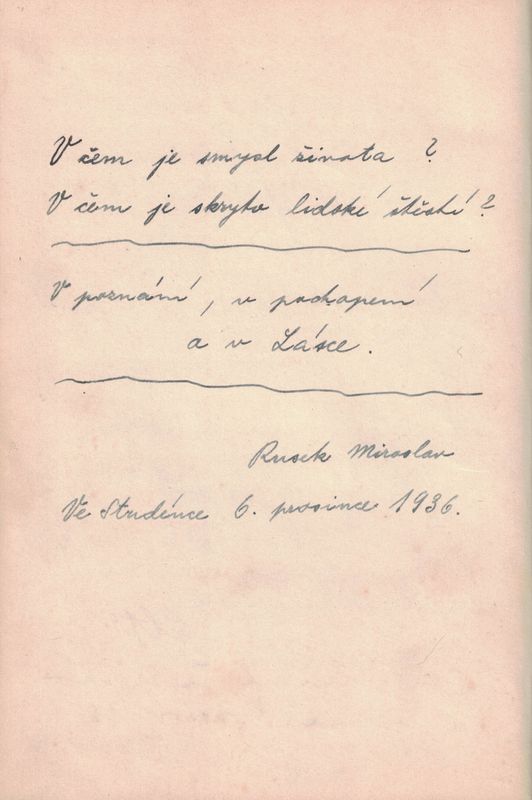 V čem je smysl života ?
V čem je skryto lidské štěstí ?
V poznání, v pochopení
a v Lásce.
Rusek Miroslav
Ve Studénce 6. prosince 1936.